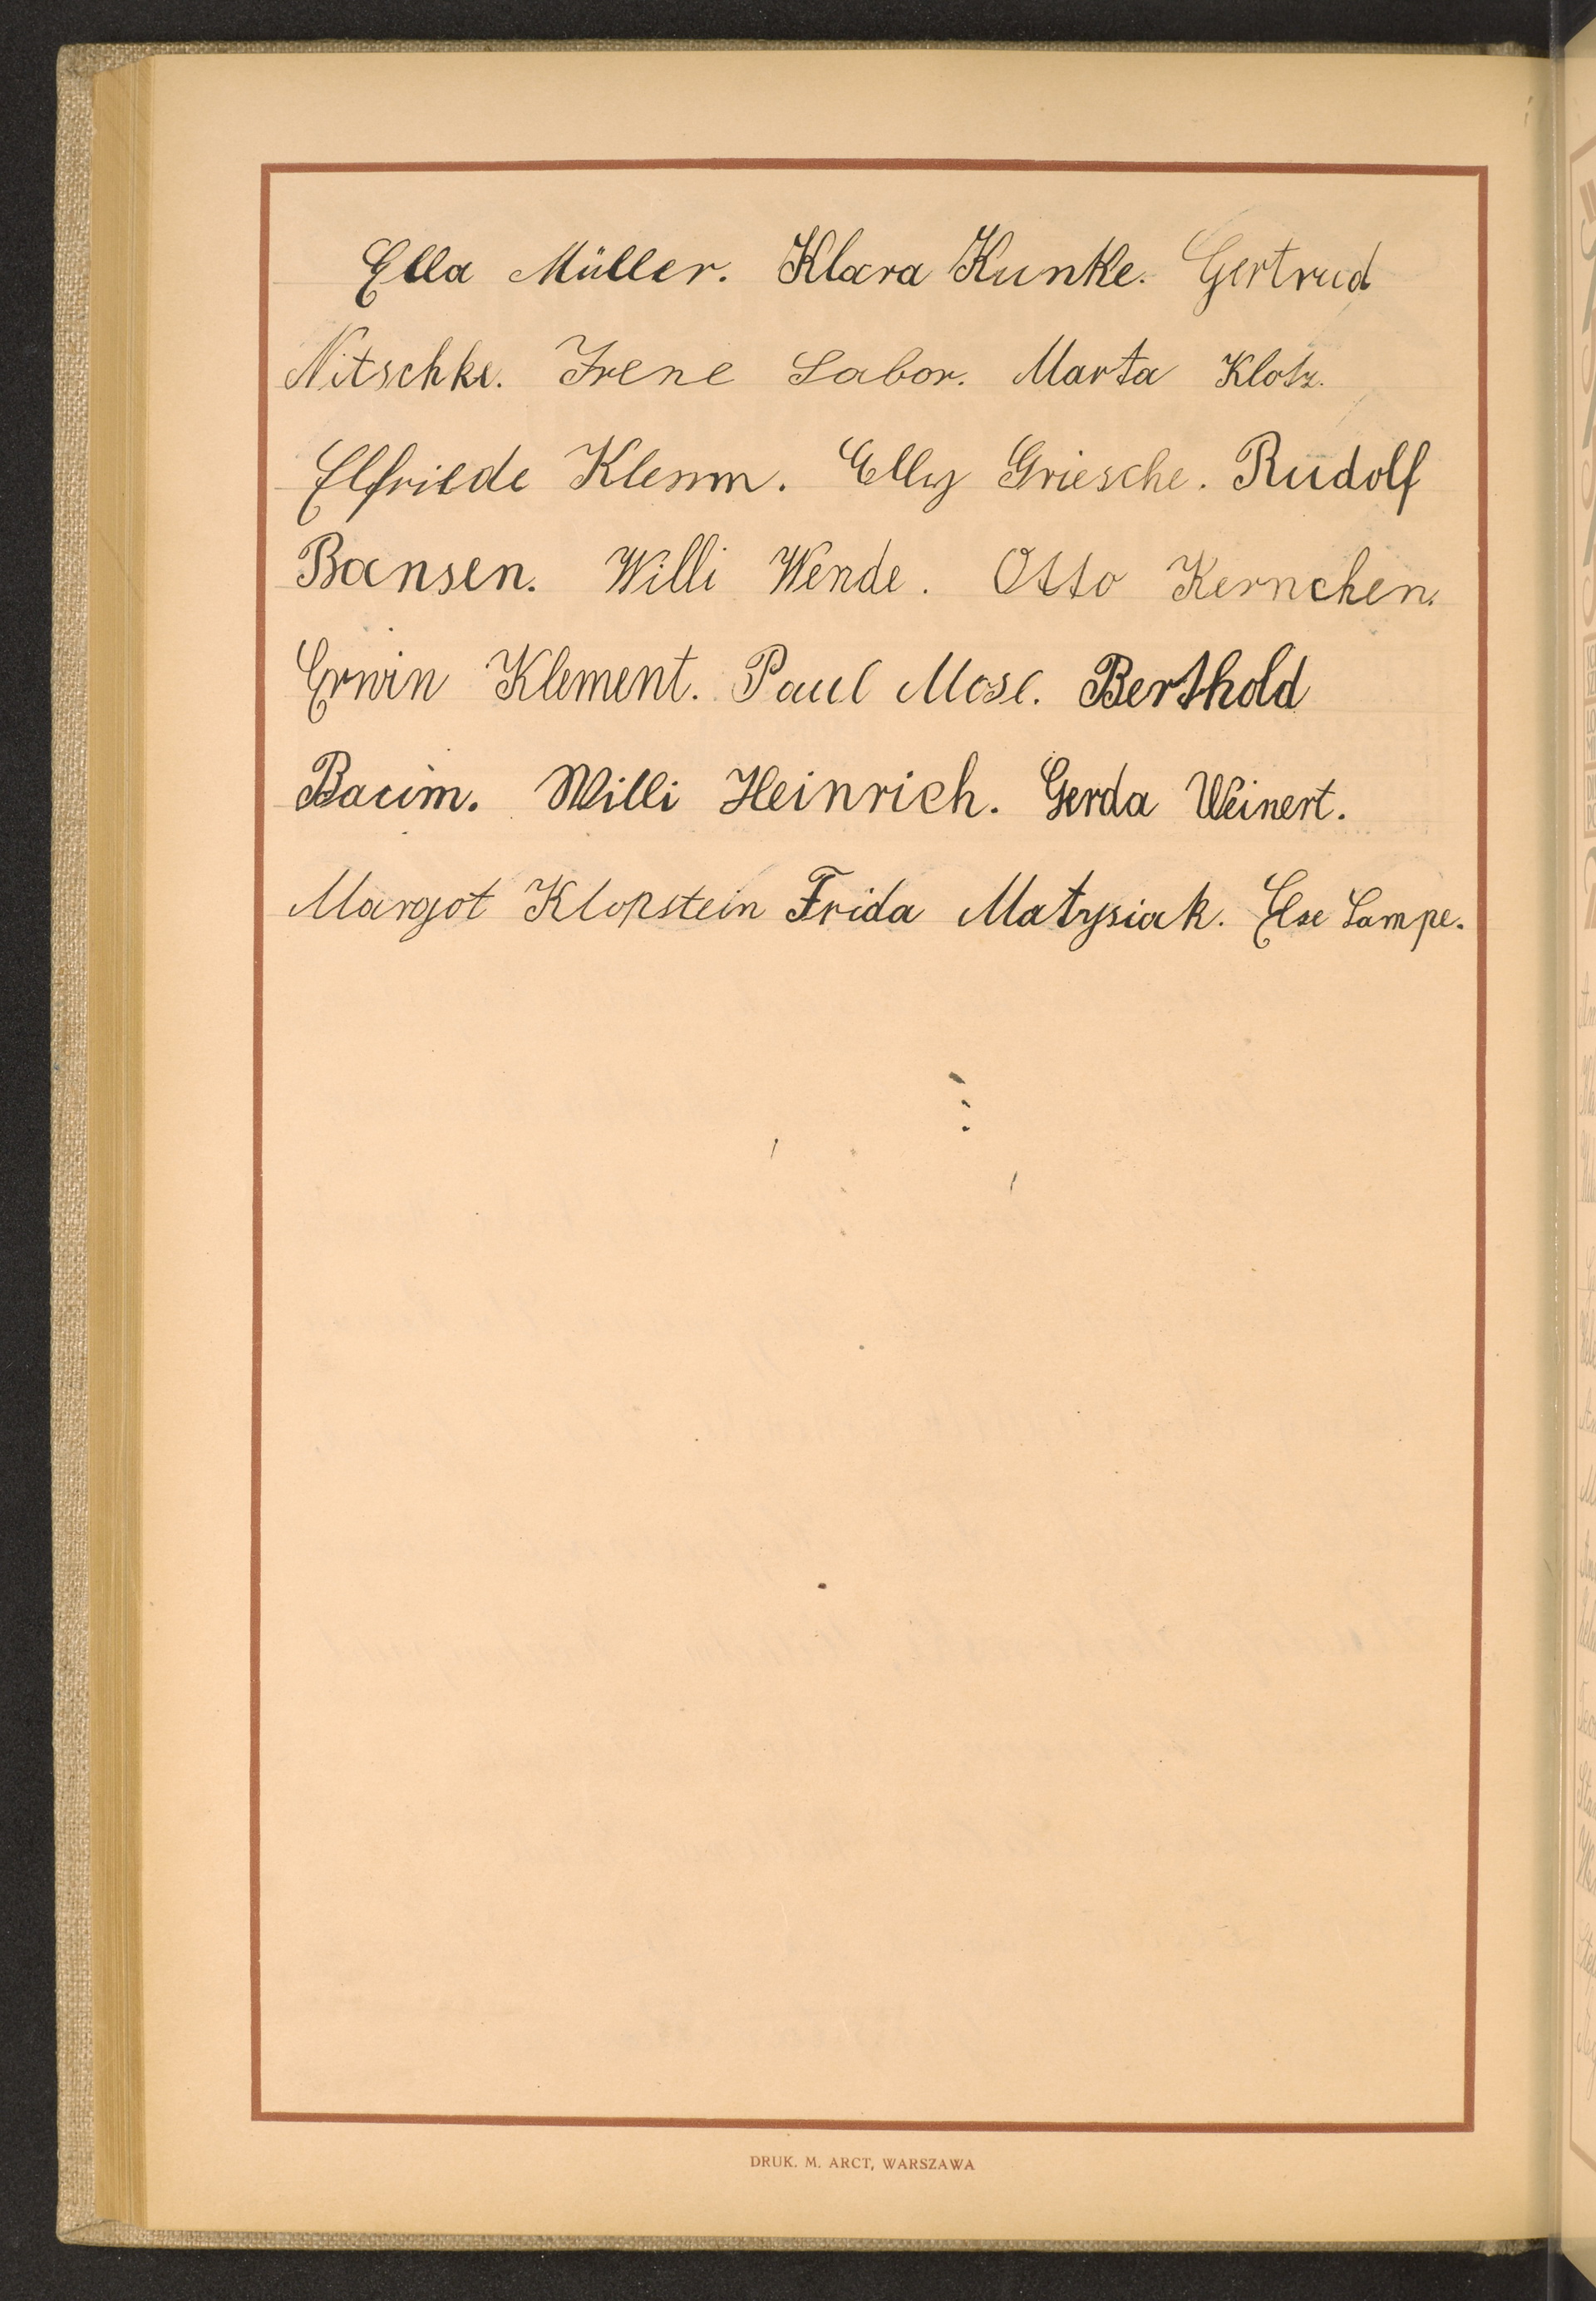 Ella Müller. Klara Kunke. Gertrud
Nitschke. Irene Labor. Marta Klotz.
Elfriede Klemm. Elly Griesche. Rudolf
Bansen. Willi Wende. Otto Kernchen.
Erwin Klement. Paul Mose. Berthold
Baum. Willi Heinrich. Gerda Weinert.
Margot Klopstein Frida Matysiak. Else Lampe.
DRUK. M. ARCT, WARSZAWA